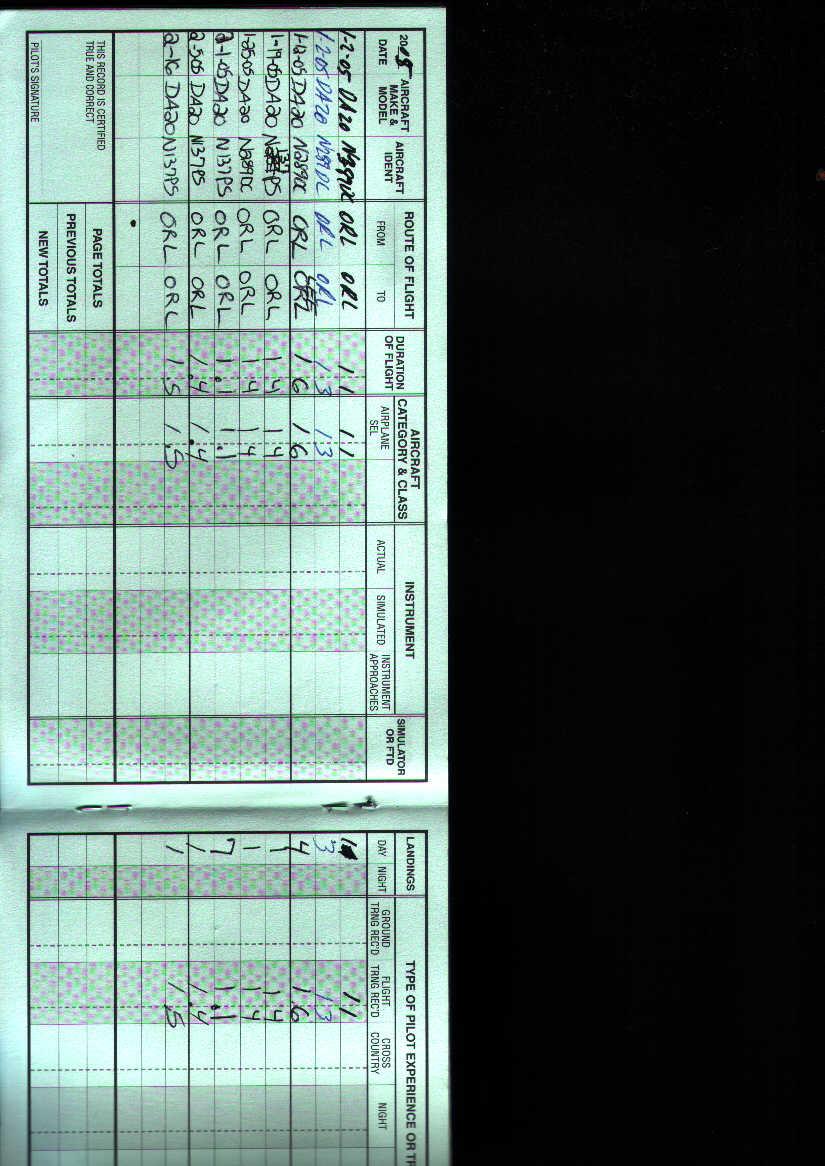 2005 AIRCRAFT AIRCRAFT ROUTE OF FLIGHT DURATION AIRCRAFT INSTRUMENT SIMULATOR LANDINGS TYPE OF PILOT EXPERIENCE OR TR
DATE MAKE & IDENT FROM TO OF FLIGHT CATEGORY & CLASS ACTUAL SIMULATED INSTRUMENT OR FTD DAY NIGHT GROUND FLIGHT CROSS NIGHT
MODEL AIRPLANE APPROACHES TRNG REC'D TRNG REC'D COUNTRY
SEL
1-2-05 DA20 ORL ORL 1 1 1 1 1 1 1
1-2-05 DA20 N289DC ORL ORL 1 3 1 3 3 1 3
1-12-05 DA20 N289DC ORL 1 6 1 6 4 1.6
1-19-05 DA20 N137PS ORL ORL 1 4 1 4 1 1.4
1-25-05 DA20 N289DC ORL ORL 1 4 1 4 1 1 4
2-1-05 DA20 N137PS ORL ORL 1.1 1.1 7 1.1
2-5-05 DA20 N137PS ORL ORL 1.4 1.4 1 1.4
2-16 DA20 N137PS ORL ORL 1.5 1.5 1 1.5
THIS RECORD IS CERTIFIED PAGE TOTALS
TRUE AND CORRECT PREVIOUS TOTALS
PILOT'S SIGNATURE NEW TOTALS